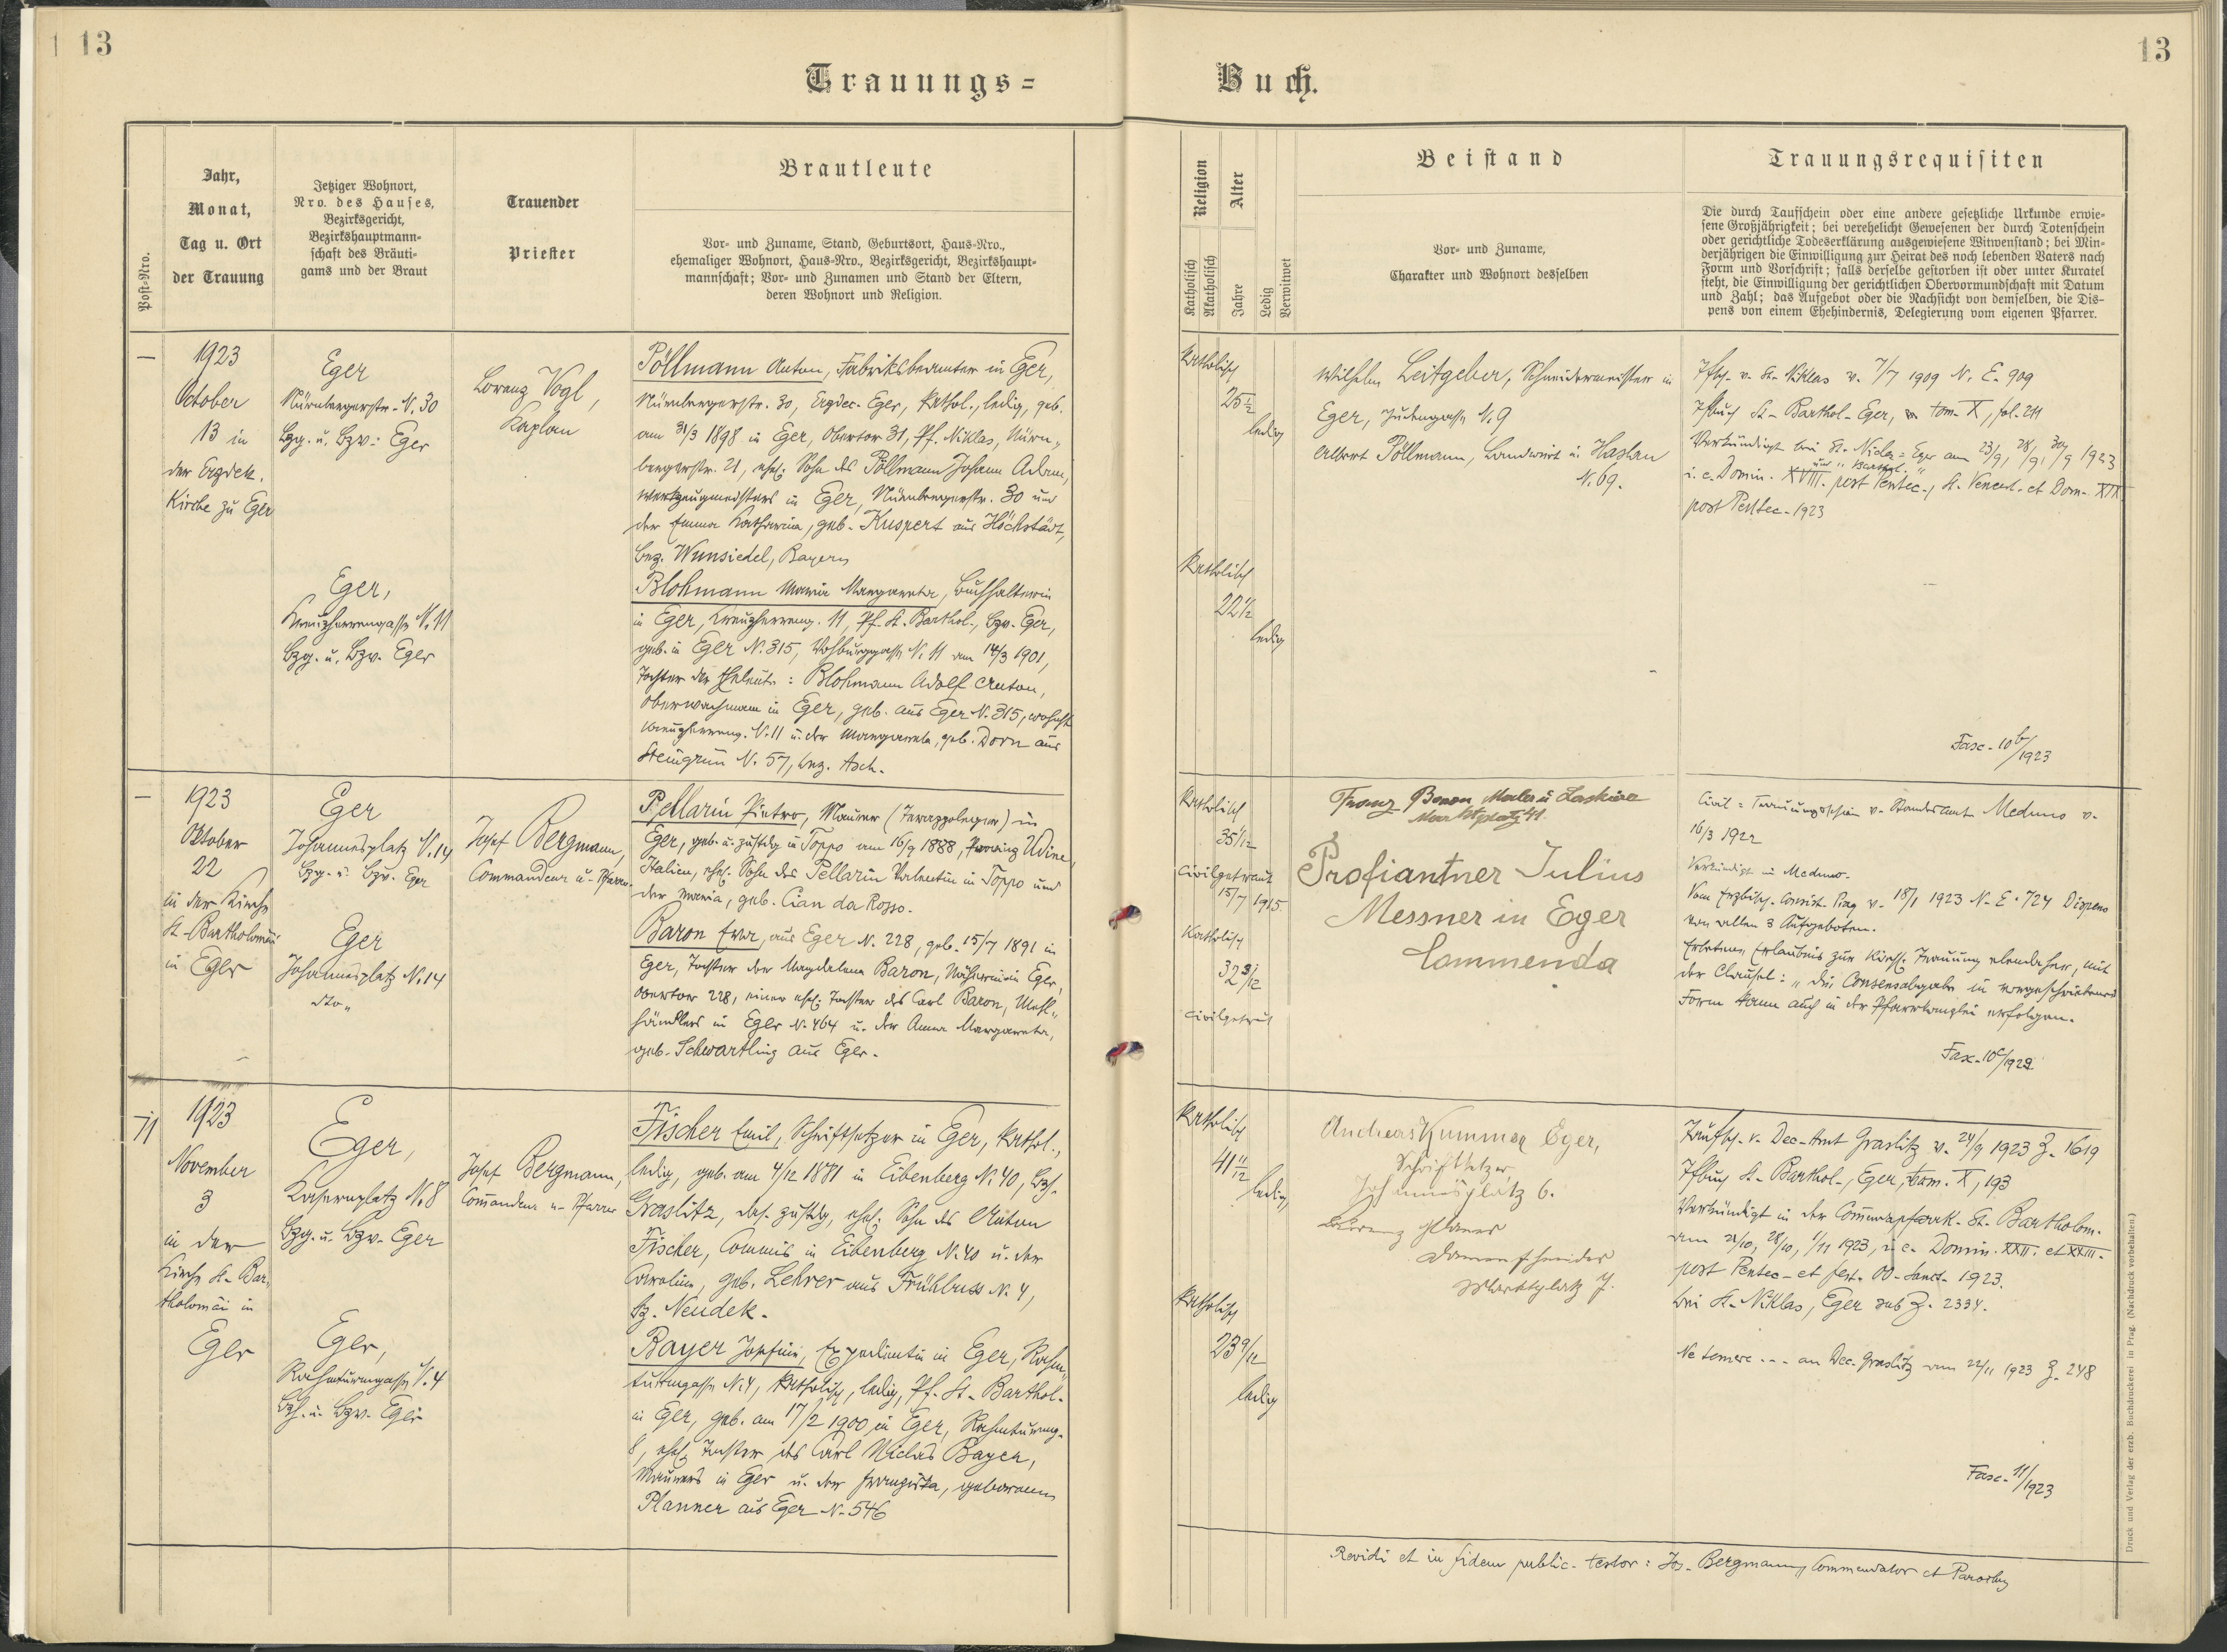 13
13
Trauungs=
Buch.
Post=Nro.
Jahr,
Monat,
Tag u. Ort
der Trauung
Jetziger Wohnort,
Nro. des Hauses,
Bezirksgericht,
Bezirkshauptmann=
schaft des Bräuti=
gams und der Braut
Trauender
Priester
Brautleute
Vor= und Zuname, Stand, Geburtsort, Haus=Nro.,
ehemaliger Wohnort, Haus=Nro., Bezirksgericht, Bezirkshaupt=
mannschaft; Vor= und Zunamen und Stand der Eltern,
deren Wohnort und Religion.
Religion
Katholisch
Akatholisch
Alter
Jahre
Ledig
Verwitwet
Beistand
Vor= und Zuname,
Charakter und Wohnort desselben
Trauungsrequisiten
Die durch Taufschein oder eine andere gesetzliche Urkunde erwie=
sene Großjährigkeit; bei verehelicht Gewesenen der durch Totenschein
oder gerichtliche Todeserklärung ausgewiesene Witwenstand; bei Min=
derjährigen die Einwilligung zur Heirat des noch lebenden Vaters nach
Form und Vorschrift; falls derselbe gestorben ist oder unter Kuratel
steht, die Einwilligung der gerichtlichen Obervormundschaft mit Datum
und Zahl; das Aufgebot oder die Nachsicht von demselben, die Dis=
pens von einem Ehehindernis, Delegierung vom eigenen Pfarrer.
—
1923
October
13 in
der Erzdek.
Kirche zu Eger
Eger
Nürnbergerstr. N. 30
Bzg. u. Bzv. Eger
Eger,
Kreuzherrengasse N. 11
Bzg. u. Bzv. Eger
Lorenz Vogl,
Kaplan
Pöllmann Anton, Fabriksbeamter in Eger,
Nürnbergerstr. 30, Erzdec. Eger, kathol., ledig, geb.
am 31/3 1898 in Eger, Obertor 31, Pf. Niklas, Nürn„
bergerstr. 21, ehel. Sohn des Pöllmann Johann Adam,
Werkzeugmeisters in Eger, Nürnbergerstr. 30 und
der Emma Katharina, geb. Kuspert aus Höchstädt,
Bez. Wunsiedel, Bayern
Blohmann Maria Margareta, Buchhalterin
in Eger, Kreuzherreng. 11, Pf. St. Barthol., Bzv. Eger,
geb. in Eger N. 315, Vohburggasse N. 11 am 14/3 1901,
Tochter der Eheleute: Blohmann Adolf Anton,
Oberwachmann in Eger, geb. aus Eger N. 315, wohnh.
Kreuzherreng. N. 11 u. der Margareta, geb. Dorn aus
Steingrün N. 57, Bez. Asch.
Katholisch
25 1/2
ledig
Katholisch
22 1/2
ledig
Wilhelm Leitgeber, Schneidermeister in
Eger, Judengasse N. 9
Albert Pöllmann, Landwirt in Haslau
N. 69.
Tfsch. v. St. Niklas v. 7/7 1909 N. E. 909
Tfbuch St. Barthol. Eger, tom. X, fol. 211
Verkündigt bei St. Nicla= Eger am 23/9, 28/9, 30/9 1923
und " Barthol. "
i. e. Domin. XVIII. post Pentec., St. Vencesl. et Dom. XIX.
post Pentec. 1923
Fasc. 10b/1923
—
1923
Oktober
22
in der Kirche
St. Bartholomäi
in Eger
Eger
Johannesplatz N. 14
Bzg. u. Bzv. Eger
Eger
Johannesplatz N. 14
dto„
Josef Bergmann,
Commandeur u. Pfarrer
Pellarin Pietro, Maurer (Terazzoleger) in
Eger, geb. u. zustdg in Toppo am 16/9 1888, Provinz Udine,
Italien, ehel. Sohn des Pellarin Valentin in Toppo und
der Maria, geb. Cian da Rosso.
Baron Eva, aus Eger N. 228, geb. 15/7 1891 in
Eger, Tochter der Magdalena Baron, Näherin in Eger,
Obertor 228, einer ehel. Tochter des Carl Baron, Mehl„
händlers in Eger N. 464 u. der Anna Margareta,
geb. Schwartling aus Eger.
Katholisch
35 1/12
Civilgetraut
15/7 1915.
Katholisch
32 3/12
Civilgetraut
Franz Baron Maler u Lackirer
Marktplatz 41
Profiantner Julius
Messner in Eger
Commenda
Civil=Trauungsschein v. Standesamt Meduno v.
16/3 1922
Verkündigt in Meduno.
Vom Erzbisch. Consist. Prag v. 18/1 1923 N. E. 724 Dispens
von allen 3 Aufgeboten.
Erbetene Erlaubnis zur Kirchl. Trauung ebendaher, mit
der Clausel: „ die Consensabgabe in vorgeschriebener
Form kann auch in der Pfarrkanzlei erfolgen.
Fasc. 10c/1923
11
1923
November
3
in der
Kirche St. Bar„
tholomäi in
Eger
Eger,
Kasernplatz N. 8
Bzg. u. Bzv. Eger
Eger,
Rahmturmgasse N. 4
Bzg. u. Bzv. Eger
Josef Bergmann,
Commandeur u. Pfarrer
Fischer Emil, Schriftsetzer in Eger, kathol.,
ledig, geb. am 4/12 1881 in Eibenberg N. 40, Bzh.
Graslitz, das. zustdg, ehel. Sohn des Anton
Fischer, Commis in Eibenberg N. 40 u. der
Carolina, geb. Lehrer aus Frühbuss N. 4,
Bz. Neudek.
Bayer Josefine, Expedientin in Eger, Rahm„
turmgasse N. 4, katholisch, ledig, Pf. St. Barthol.
in Eger, geb. am 17/2 1900 in Eger, Rahmturmg.
8, ehel. Tochter des Carl Niclas Bayer,
Maurers in Eger u. der Franziska, geborenen
Planner aus Eger N. 546
Katholisch
41 11/12
ledig
Katholisch
23 9/12
ledig
Andreas Kummer Eger,
Schriftsetzer
Johannesplatz 6.
Damenschneider
Marktplatz 7.
Taufsch. v. Dec. Amt Graslitz v. 24/9 1923 Z. 1619
Tfbuch St. Barthol., Eger, tom. X, 193
Verkündigt in der Commendapfarrk. St. Bartholom.
am 21/10, 28/10, 1/11 1923, i. e. Domin. XXII. et XXIII.
post Pentec. et fest. OO. Sanct. 1923.
bei St. Niklas, Eger sub Z. 2334.
Ne temere ... an Dec. Graslitz am 22/11 1923 Z. 248
Fasc. 11/1923
Revidi et in fidem public. testor: Jos. Bergmann, Commendator et Parochus
Druck und Verlag der erzb. Buchdruckerei in Prag. (Nachdruck vorbehalten.)